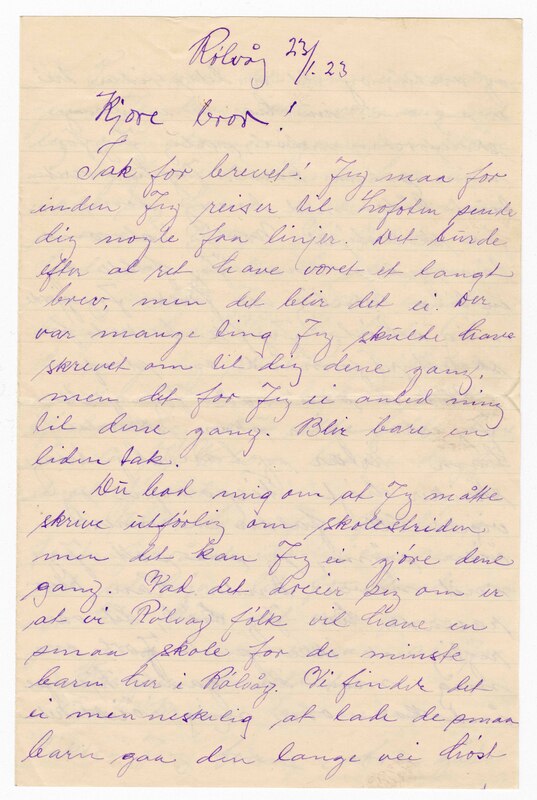 Rölvåg 23/1.23
Kjöre bror!
Tak for brevet! Jeg maa for
inden Jeg reiser til Lofoten sende
dig nogle faa linjer. Det burde
efter al ret have vöret et langt
brev, men det blir det ei. Der
var mange ting Jeg skulde have
skrevet om til dig dene gang,
men det for Jeg ei anledning
til dene gang. Blir bare en
liden tak.
Du bad mig om at Jeg måtte
skrive utförlig om skolestriden
men det kan Jeg ei gjöre dene
gang. Vad det dreier sig om er
at vi Rölvåg fölk vil have en
smaa skole for de minste
barn her i Rölvåg. Vi finder det
ei menneskelig at lade de smaa
barn gaa den lange vei höst